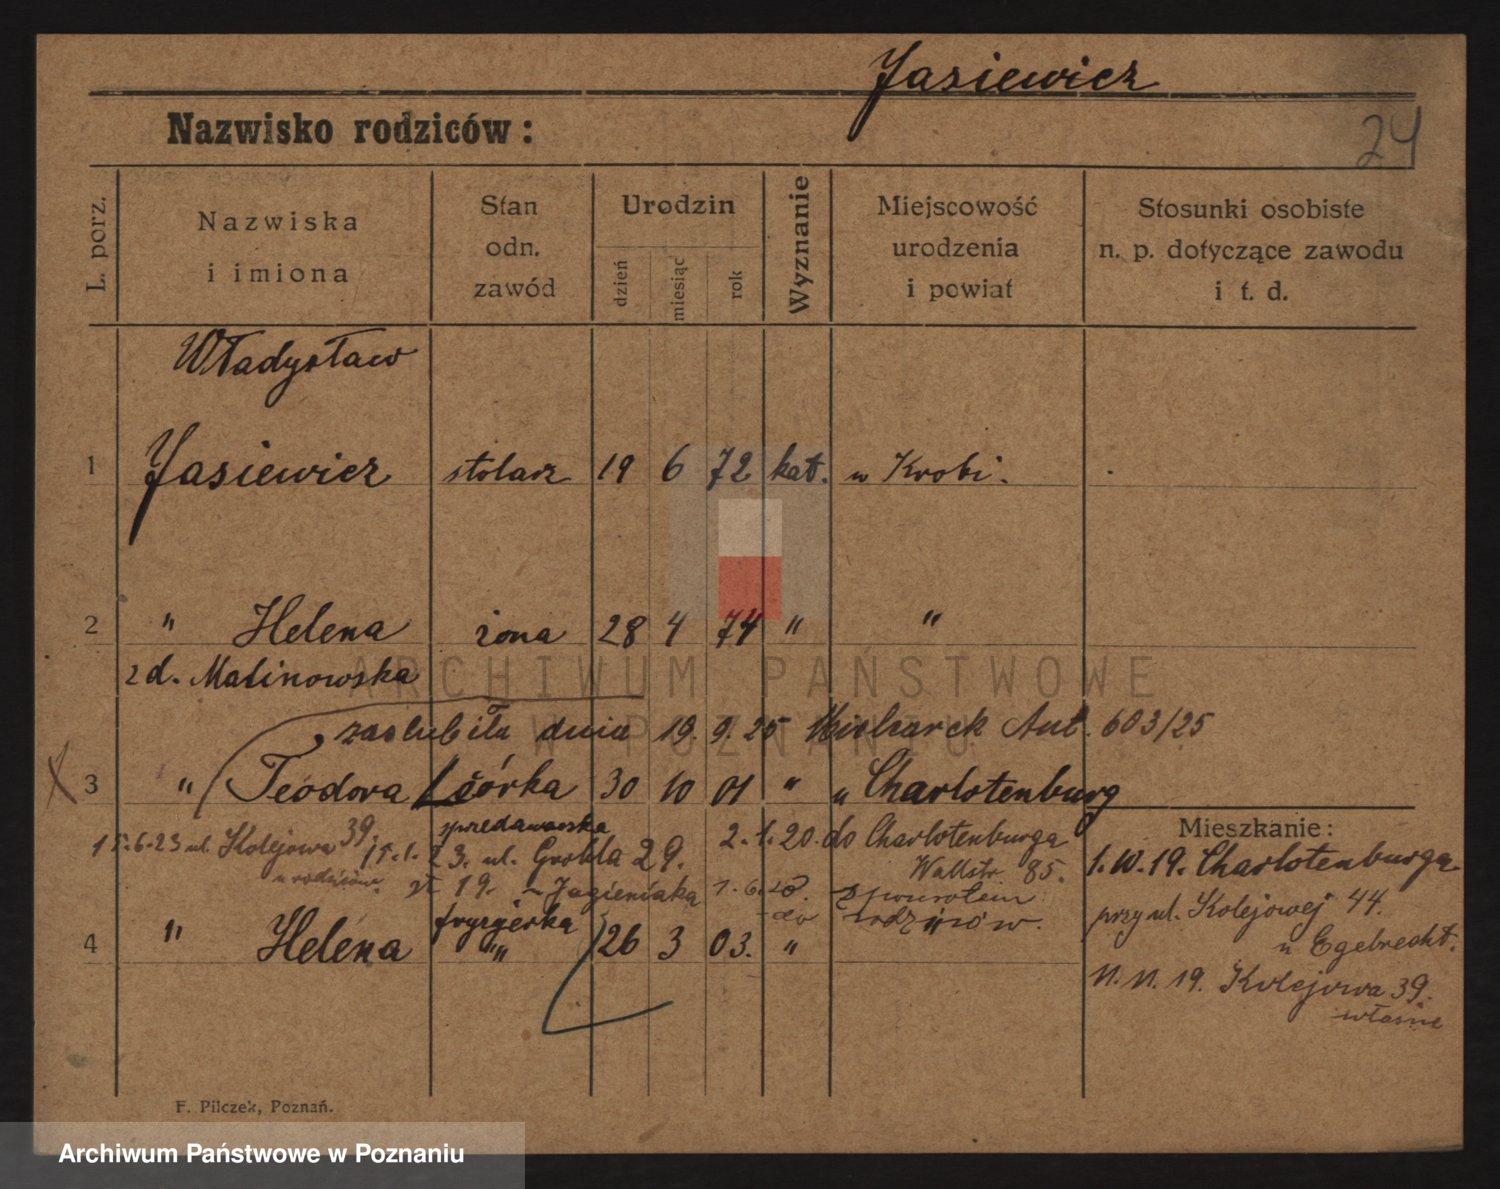 Jasiewicz
Nazwisko rodziców:
24
L. porz.
Nazwiska
i imiona
Stan
odn.
zawód
Urodzin
dzień
miesiąc
rok
Wyznanie
Miejscowość
urodzenia
i powiat
Stosunki osobiste
n. p. dotyczące zawodu
i t. d.
Władysław
1 Jasiewicz stolarz 19 6 72 kat. w Krobi.
2 " Helena żona 28 4 74 " "
z d. Malinowska
ARCHIWUM PAŃSTWOWE
W POZNANIU
zaślubiła dnia 19. 9. 25 Ant. 603/25
3 " Teodora córka 30 10 01 " " Charlotenburg
Mieszkanie:
15.6.23 ul. Kolejowa 39
u rodziców
15.1.23. ul. Grobla 29.
2.1.20. do Charlotenburga
Wallstr. 85.
1. 6. 20. z powrotem
do rodziców.
4 " Helena fryzjerka "" 26 3 03. " "
1. 10. 19. Charlotenburga
przy ul. Kolejowej 44.
u Egebrecht.
11. 11. 19. Kolejowa 39.
własne
F. Pilczek, Poznań.
Archiwum Państwowe w Poznaniu